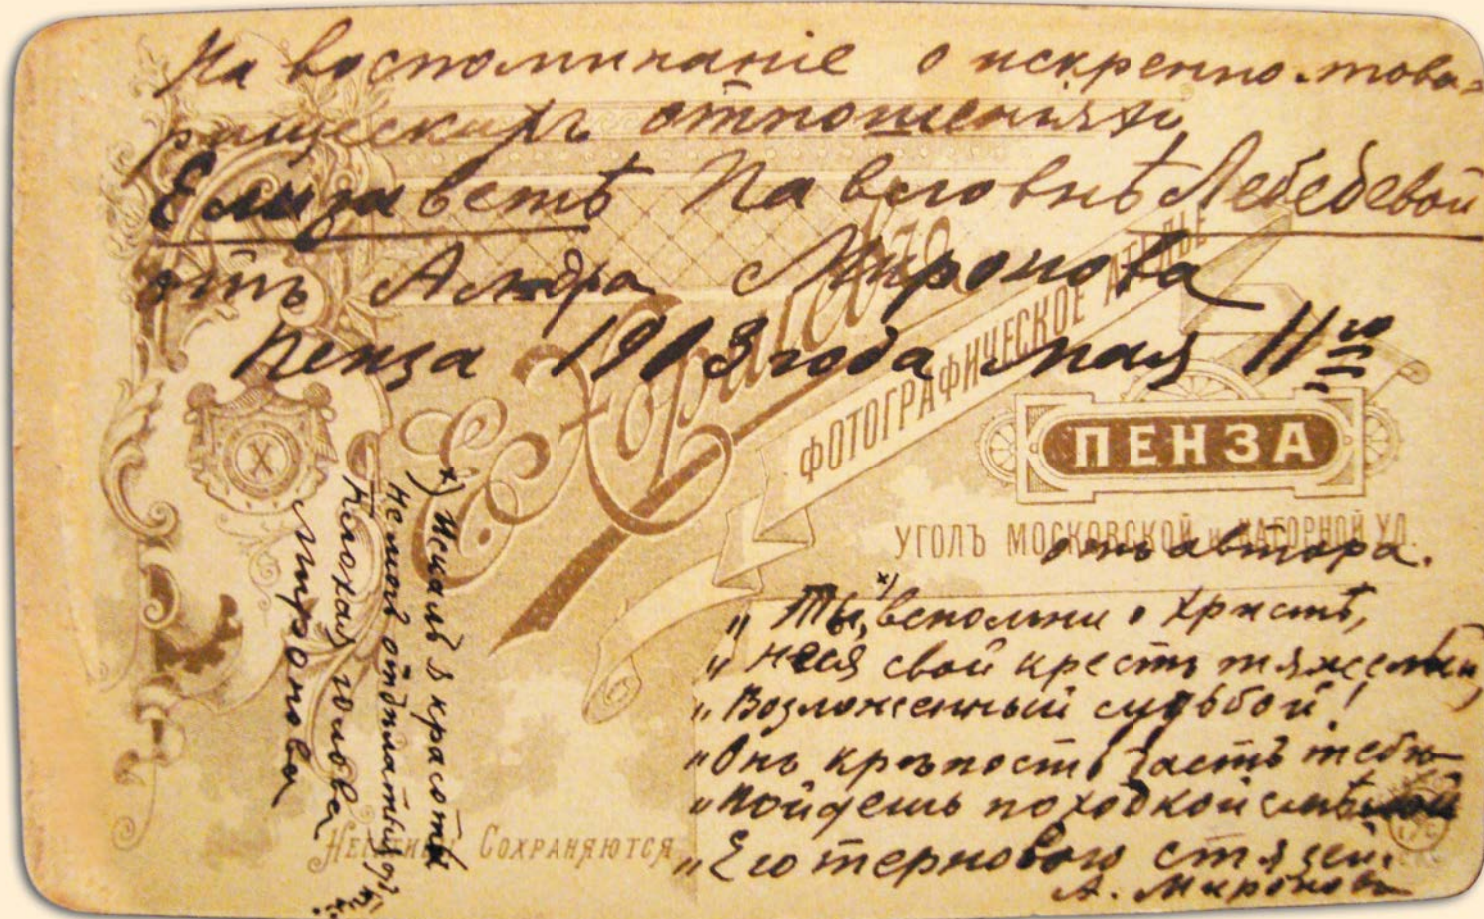 На воспоминаніе о искренно-това=
рищескихъ отношеніяхъ
Елизаветѣ Павловнѣ Лебедевой
отъ Алкдра Миронова
Пенза 1903 года мая 11го
Е. Хорагевъ
ФОТОГРАФИЧЕСКОЕ АТЕЛЬЕ
ПЕНЗА
УГОЛЪ МОСКОВСКОЙ и НАГОРНОЙ УЛ.
Х
отъ автора.
„Ты, х) вспомни о Христѣ,
„Неся свой крестъ тяжелый
„Возложенный судьбой!
„Онъ крѣпость дастъ тебѣ
„Пойдешь походкой смѣлой
„Его терновою стязей.
А. Мироновъ
НЕГАТИВЫ СОХРАНЯЮТСЯ
х) Искалъ я красоты
Не могъ
Плохая голова
Миронова